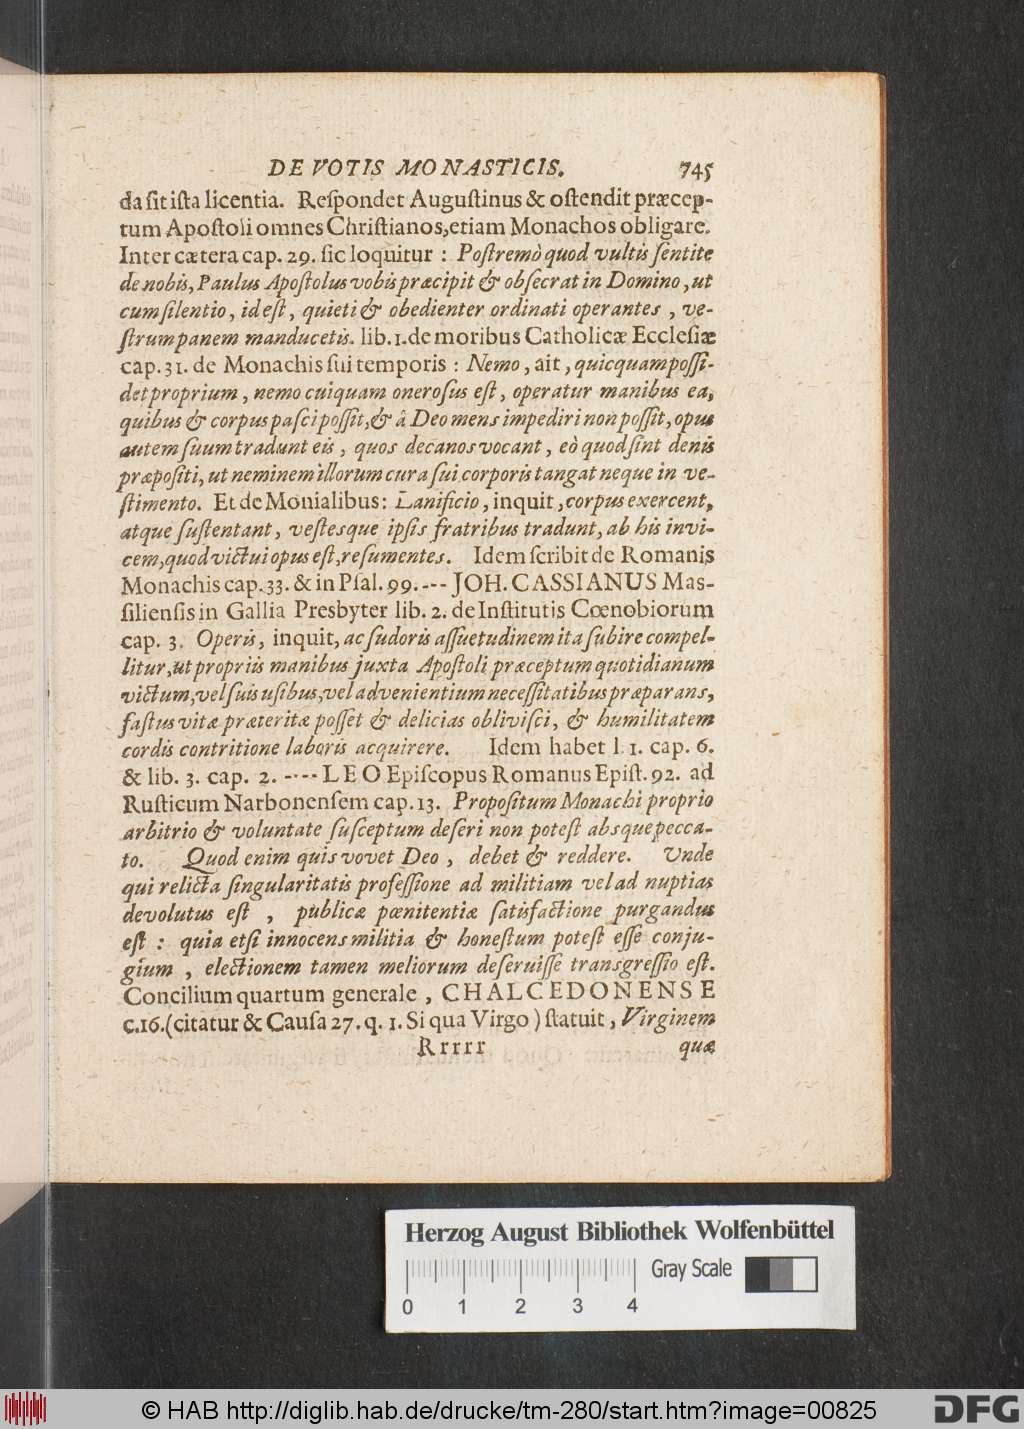 DE VOTIS MONASTICIS. 745
da sit ista licentia. Respondet Augustinus & ostendit præcep-
tum Apostoli omnes Christianos, etiam Monachos obligare.
Inter cætera cap. 29. sic loquitur : Postremò quod vultis sentite
de nobis, Paulus Apostolus vobis præcipit & obsecrat in Domino, ut
cum silentio, id est, quieti & obedienter ordinati operantes, ve-
strum panem manducetis. lib. 1. de moribus Catholicæ Ecclesiæ
cap. 31. de Monachis sui temporis : Nemo, ait, quicquam possi-
det proprium, nemo cuiquam onerosus est, operatur manibus ea,
quibus & corpus pasci possit, & â Deo mens impediri non possit, opus
autem suum tradunt eis, quos decanos vocant, eò quod sint denis
præpositi, ut neminem illorum cura sui corporis tangat neque in ve-
stimento. Et de Monialibus: Lanificio, inquit, corpus exercent,
atque sustentant, vestesque ipsis fratribus tradunt, ab his invi-
cem, quod victui opus est, resumentes. Idem scribit de Romanis
Monachis cap. 33. & in Psal. 99. --- JOH. CASSIANUS Mas-
siliensis in Gallia Presbyter lib. 2. de Institutis Cœnobiorum
cap. 3. Operis, inquit, ac sudoris assuetudinem ita subire compel-
litur, ut propriis manibus juxta Apostoli præceptum quotidianum
victum, vel suis usibus, vel advenientium necessitatibus præparans,
fastus vitæ præteritæ posset & delicias oblivisci, & humilitatem
cordis contritione laboris acquirere. Idem habet l. 1. cap. 6.
& lib. 3. cap. 2. ---- LEO Episcopus Romanus Epist. 92. ad
Rusticum Narbonensem cap. 13. Propositum Monachi proprio
arbitrio & voluntate susceptum deseri non potest absque pecca-
to. Quod enim quis vovet Deo, debet & reddere. Unde
qui relicta singularitatis professione ad militiam vel ad nuptias
devolutus est, publicæ pœnitentiæ satisfactione purgandus
est : quia etsi innocens militia & honestum potest esse conju-
gium, electionem tamen meliorum deseruisse transgressio est.
Concilium quartum generale, CHALCEDONENSE
c. 16. (citatur & Causa 27. q. 1. Si qua Virgo) statuit, Virginem
Rrrrr quæ
Herzog August Bibliothek Wolfenbüttel
Gray Scale
0 1 2 3 4
© HAB http://diglib.hab.de/drucke/tm-280/start.htm?image=00825
DFG